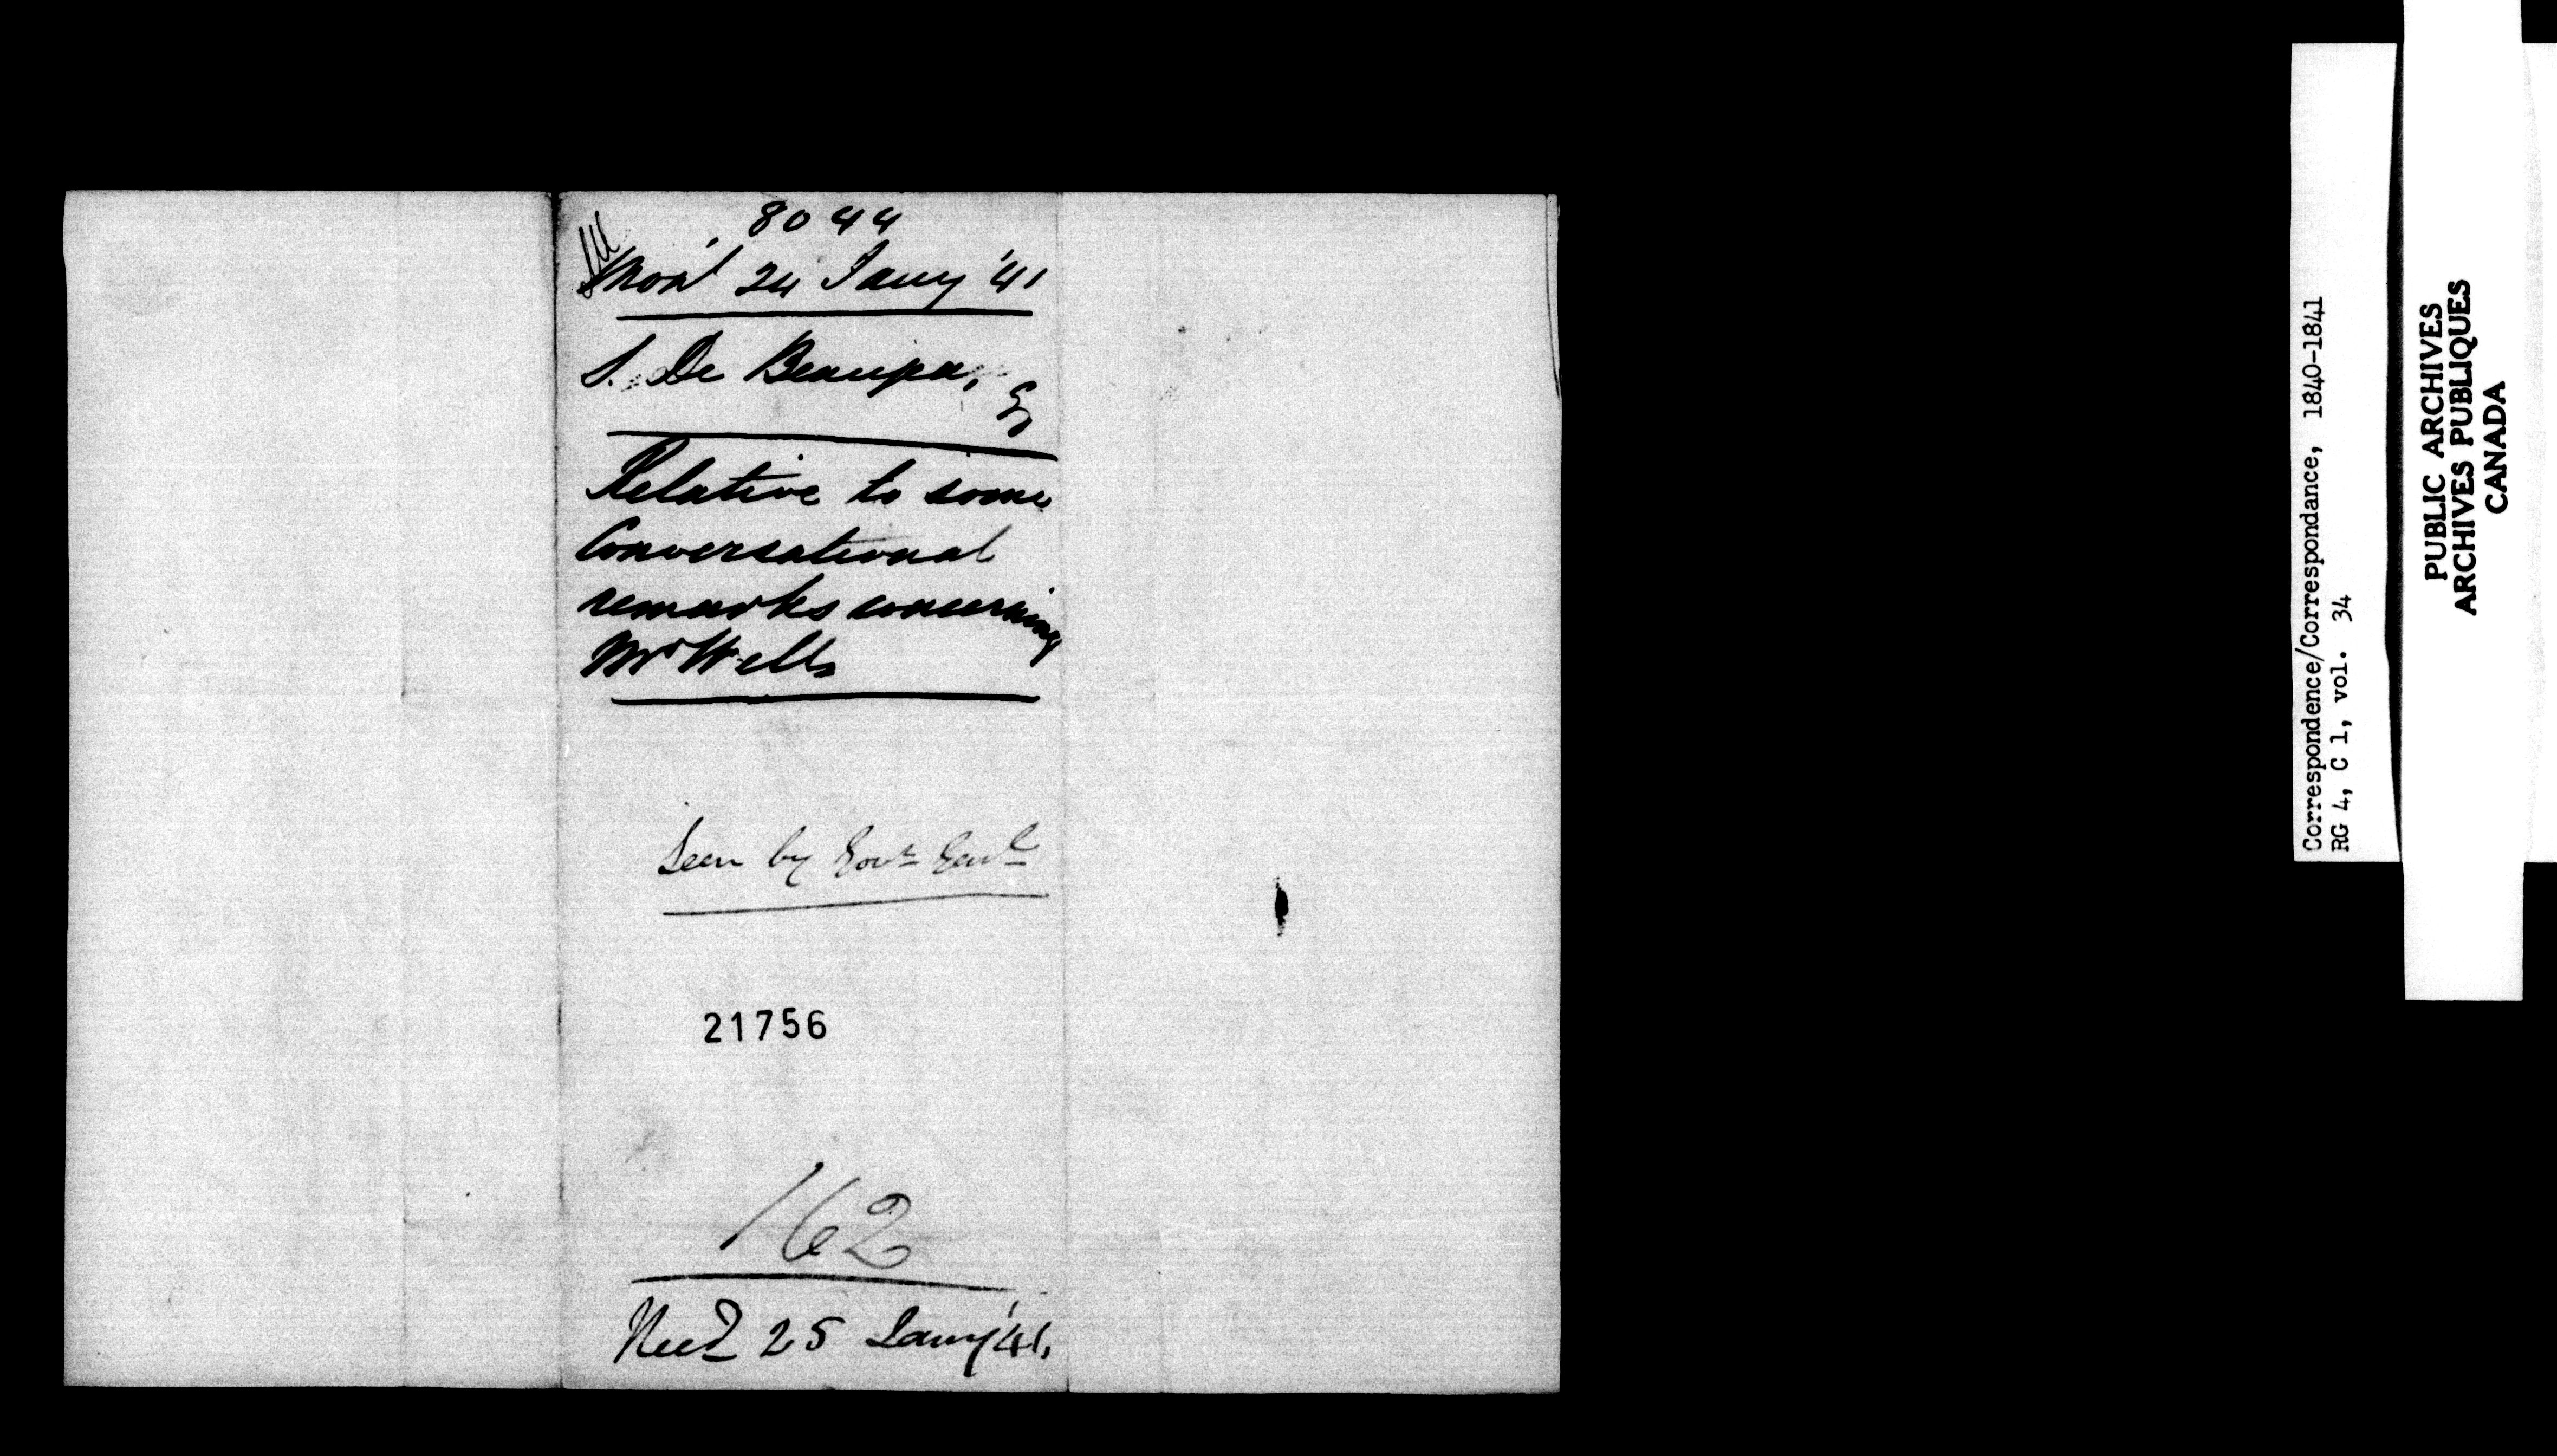 8044
Mon^l 24 Jany '41
S. De Beaupré,
Relative to some
Conversational
remarks concerning
Mr Wells
Seen by Govr Genl
21756
162
Recd 25 Jany '41.
Correspondence/Correspondance, 1840-1841
RG 4, C 1, vol. 34
PUBLIC ARCHIVES
ARCHIVES PUBLIQUES
CANADA